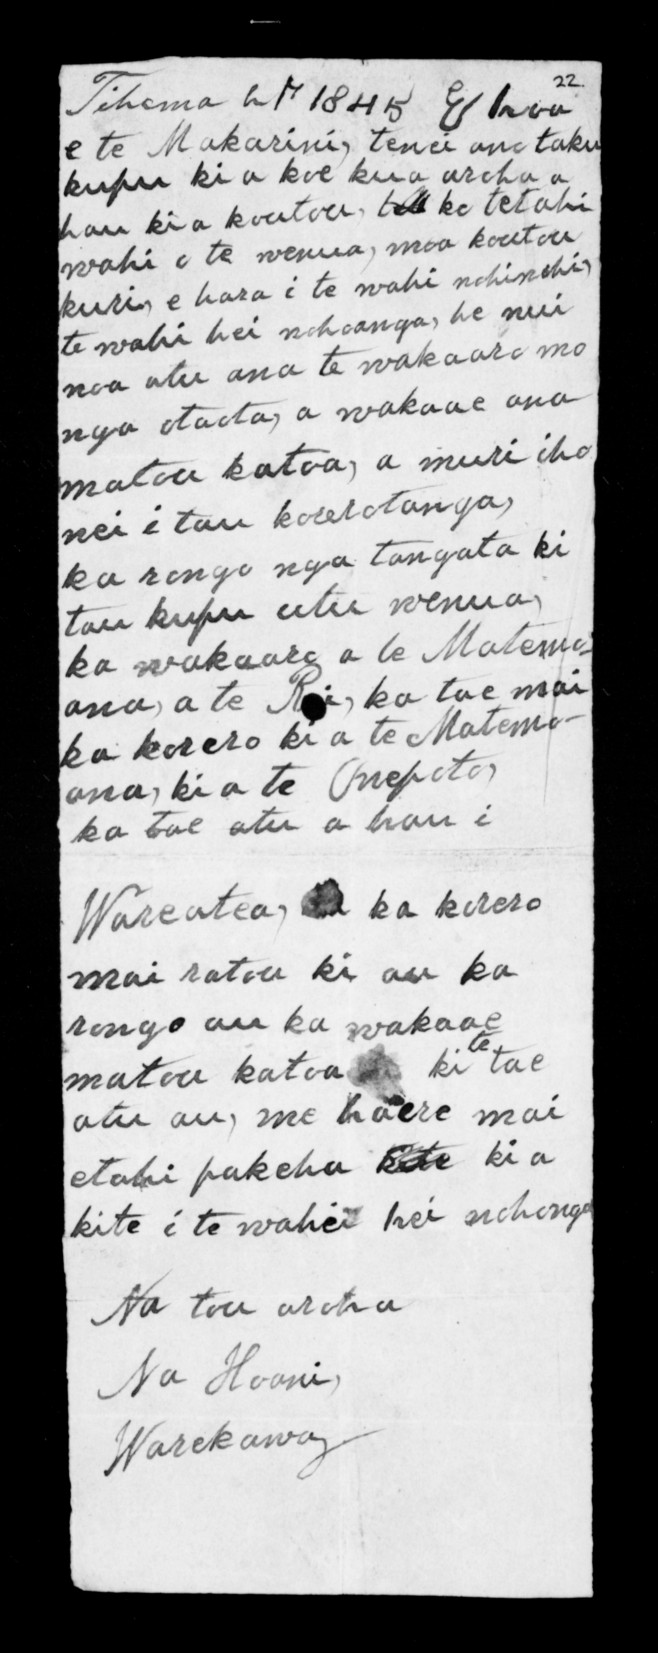 22
Tihema h M 1845 E hoa
e te Makarini, tenei ano taku
kupu ki a koe kua aroha a
hau ki a koutou, ko tetahi
wahi o te wenua, moa koutou
kuri, e hara i te wahi nohinohi,
te wahi hei nohoanga, he nui
noa atu ana te wakaaro mo
nga otaota, a wakaae ana
matou katoa, a muri iho
nei i tau korerotanga,
ka rongo nga tangata ki
tau kupu utu wenua,
ka wakaaro a te Matemo-
ana, a te Roi, ka tae mai
ka korero ki a te Matemo-
ana, ki a te Onepoto,
ka tae atu a hau i
Wareatea, ka korero
mai ratou ki au ka
rongo au ka wakaae
matou katoa ki te tae
atu au, me haere mai
etahi pakeha ki a
kite i te wahi hei nohonga
Na tou aroha
Na Hoani,
Warekawa